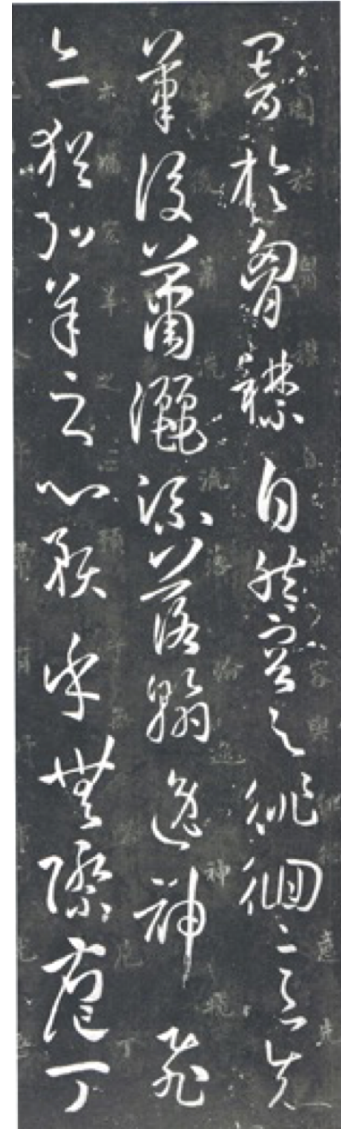 闇於胸襟自然容與徘徊意先
筆後瀟灑流落翰逸神飛
亦猶弘羊之心預乎無際庖丁